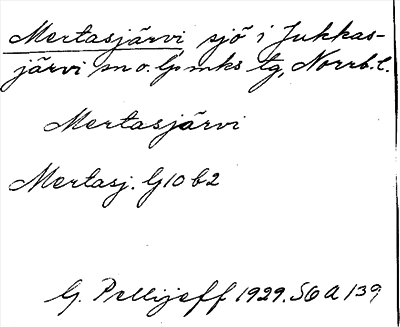 Mertasjärvi sjö i Jukkas-
järvi sn o. Gs mks tg, Norrb. l.
Mertasjärvi
Mertasj. G10 b2
G. Pellijeff 1929. SOA 139